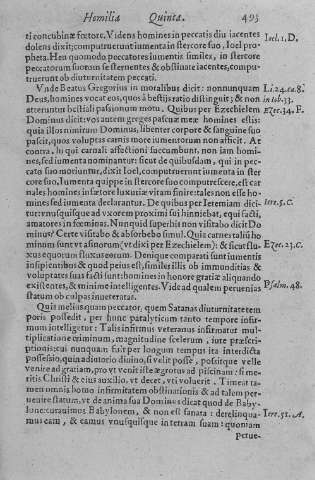 Homilia Quinta. 495
ti concubinæ fœtore. Videns homines in peccatis diu iacentes
dolens dixit; computruerunt iumenta in stercore suo, Ioel pro- Ioel. 1. D.
pheta. Hen quomodo peccatores iumentis similes, in stercore
peccatorum suorum se sternentes & obstinate iacentes, compu-
truerunt ob diuturnitatem peccati.
Vnde Beatus Gregorius in moralibus dicit: nonnunquam Li. 24. ca. 8.
Deus, homines vocat eos, quos à bestijs ratio distinguit; & non in Iob. 33.
atteruntur bestiali passionum motu. Quibus per Ezechielem Eze. 34. F.
Dominus dicit: vos autem greges pascuæ meæ homines estis:
quia illos nimirum Dominus, libenter corpore & sanguine suo
pascit, quos voluptas carnis more iumentorum non afficit. At
contra, hi qui carnali affectioni succumbunt, non iam homi-
nes, sed iumenta nominantur: sicut de quibusdam, qui in pec-
cato suo moriuntur, dixit Ioel, computruerunt iumenta in ster
core suo, Iumenta quippe in stercore suo computrescere, est car
nales homines in fœtore luxuriæ vitam finire: tales non esse ho-
mines sed iumenta declarantur. De quibus per Ieremiam dici-
tur: vnusquisque ad vxorem proximi sui hinniebat, equi facti, Iere. 5. C.
amatores in fœminas. Nunquid superbis non visitabo dicit Do
minus? Certe visitabo & absorbebo simul. Quia carnes taliũ ho
minum sunt vt asinorum (vt dixi per Ezechielem): & sicut flu- Eze. 23. C.
xus equorum fluxus eorum. Denique comparati sunt iumentis
insipientibus & quod peius est, similes illis ob immunditias &
voluptates suas facti sunt: homines in honore gratiæ aliquando
existentes, & minime intelligentes. Vide ad qualem peruenias Psalm. 48.
statum ob culpas inueteratas.
Quis melius quam peccator, quem Satanas diuturnitate tem
poris possedit, per hunc paralyticum tanto tempore infir-
mum intelligetur: Talis infirmus veteranus infirmatur mul-
tiplicatione criminum, magnitudine scelerum, iure præscri-
ptionis: cui nunquam fuit per longum tempus ita interdicta
possessio, quin adiutorio diuino, si velit posse, possitque velle
venire ad gratiam, pro vt venit iste ægrotus ad piscinam: si me-
ritis Christi & eius auxilio, vt decet, vti voluerit. Timeat ta-
men omnis homo infirmitatem obstinationis & ad talem per-
uenire statum, vt de anima sua Dominus dicat quod de Baby-
lone: curauimus Babylonem, & non est sanata: derelinqua- Iere. 51. A.
mus eam, & eamus vnusquisque in terram suam: quoniam
perue-